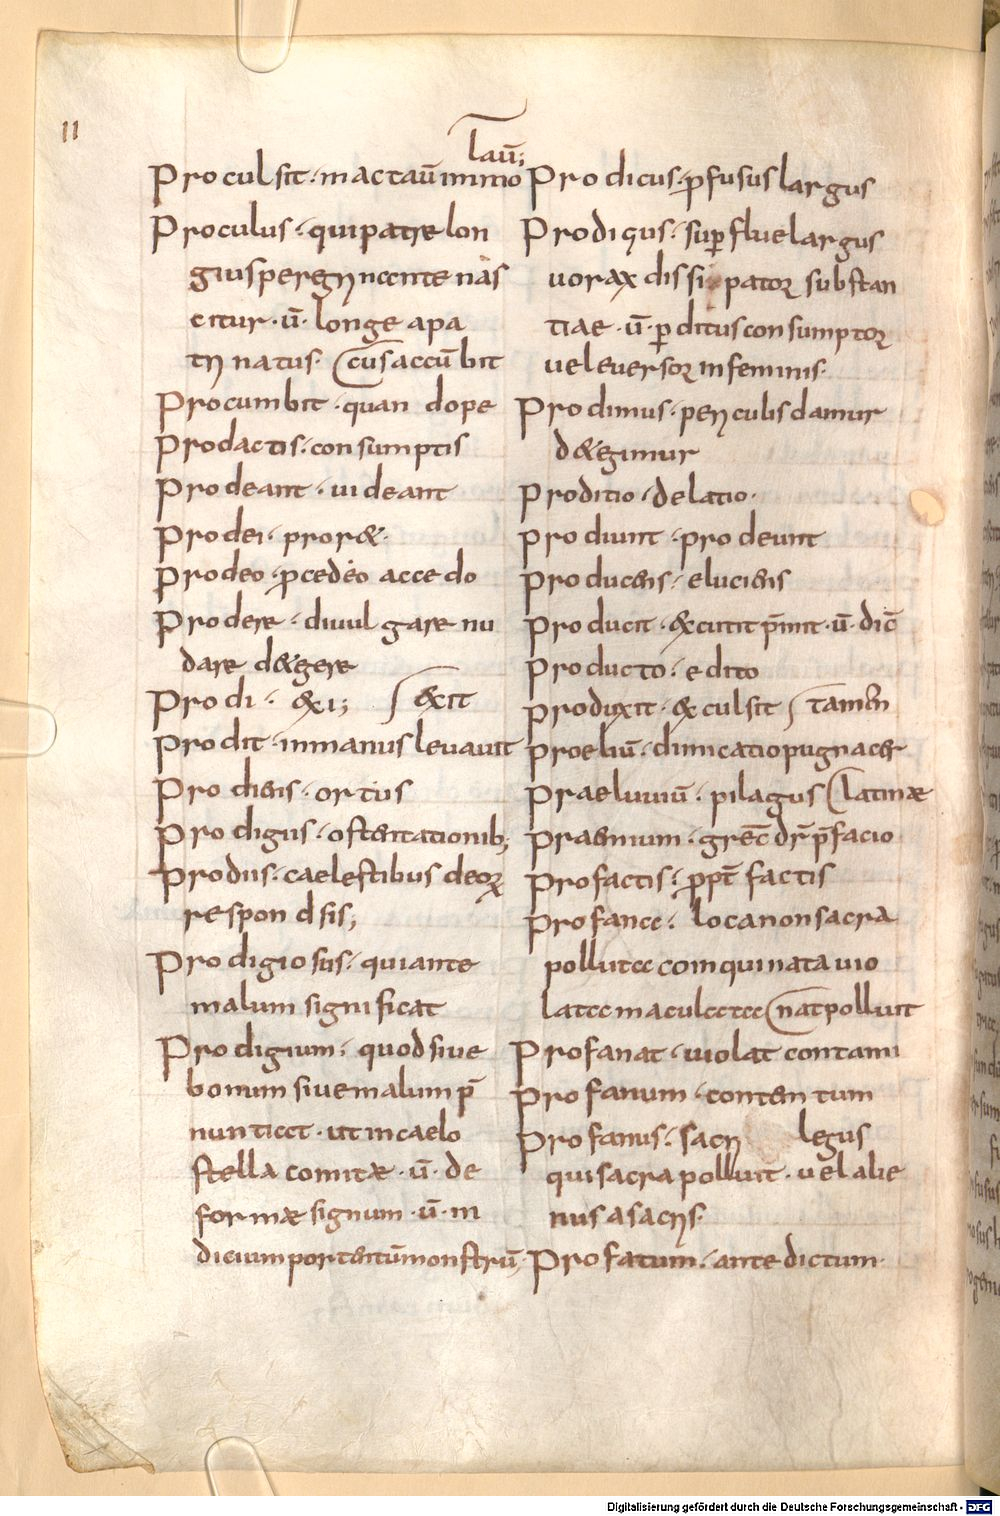 11
lau̅;
Proculsit · mactau̅ immo
Proculus · qui patre lon
gius peregrinante nas
citur · u̅ · longe a pa
tri natus · cus accu̅bit
Procumbit · quando pe
Prodactis · consumptis
Prodeant · uideant
Prodei · pror&·
Prodeo · ꝓcedeo accedo
Prodere · diuulgare nu
dare d&egere
Prodi · &xi; &xit
Prodit · in manus leuauit
Prodiens · ortus
Prodigus · ostentationib;
Prodiis · caelestibus deoꝝ
responsis;
Prodigiosus · qui ante
malum significat
Prodigium · quod siue
bonum siue malum p̅
nuntiat · ut in caelo
stella comitae · u̅ · de
formae signum · u̅ · in
dicium portentu̅ monstru̅;
Prodicus · ꝓfusus largus
Prodigus · suꝑflue largus
uorax dissipator substan
tiae · u̅ · ꝑditus consumptor
uel euersor in feminis·
Prodimus · periculis damur
d&egimur
Proditio · delatio·
prodiunt · prodeunt
producens · eluciens
Producit · &xcutit p̅mit · u̅ · dic̅
Producto · edito
produxit · &xculsit
proeliu̅ · dimicatio pugna cer
tamen
praeluuiu̅ · pilagus
praemium · grec̅ dr̅ p̅facio latinae
profactis · ꝓpt̅ factis
profana · loca non sacra
polluta comquinata uio
lata maculata
Profanat · uiolat contami nat polluit
profanum · contentum
profanus · sacri legus
qui sacra polluit · uel alie
nus a sacris·
Profatum · ante dictum·
Digitalisierung gefördert durch die Deutsche Forschungsgemeinschaft - DFG